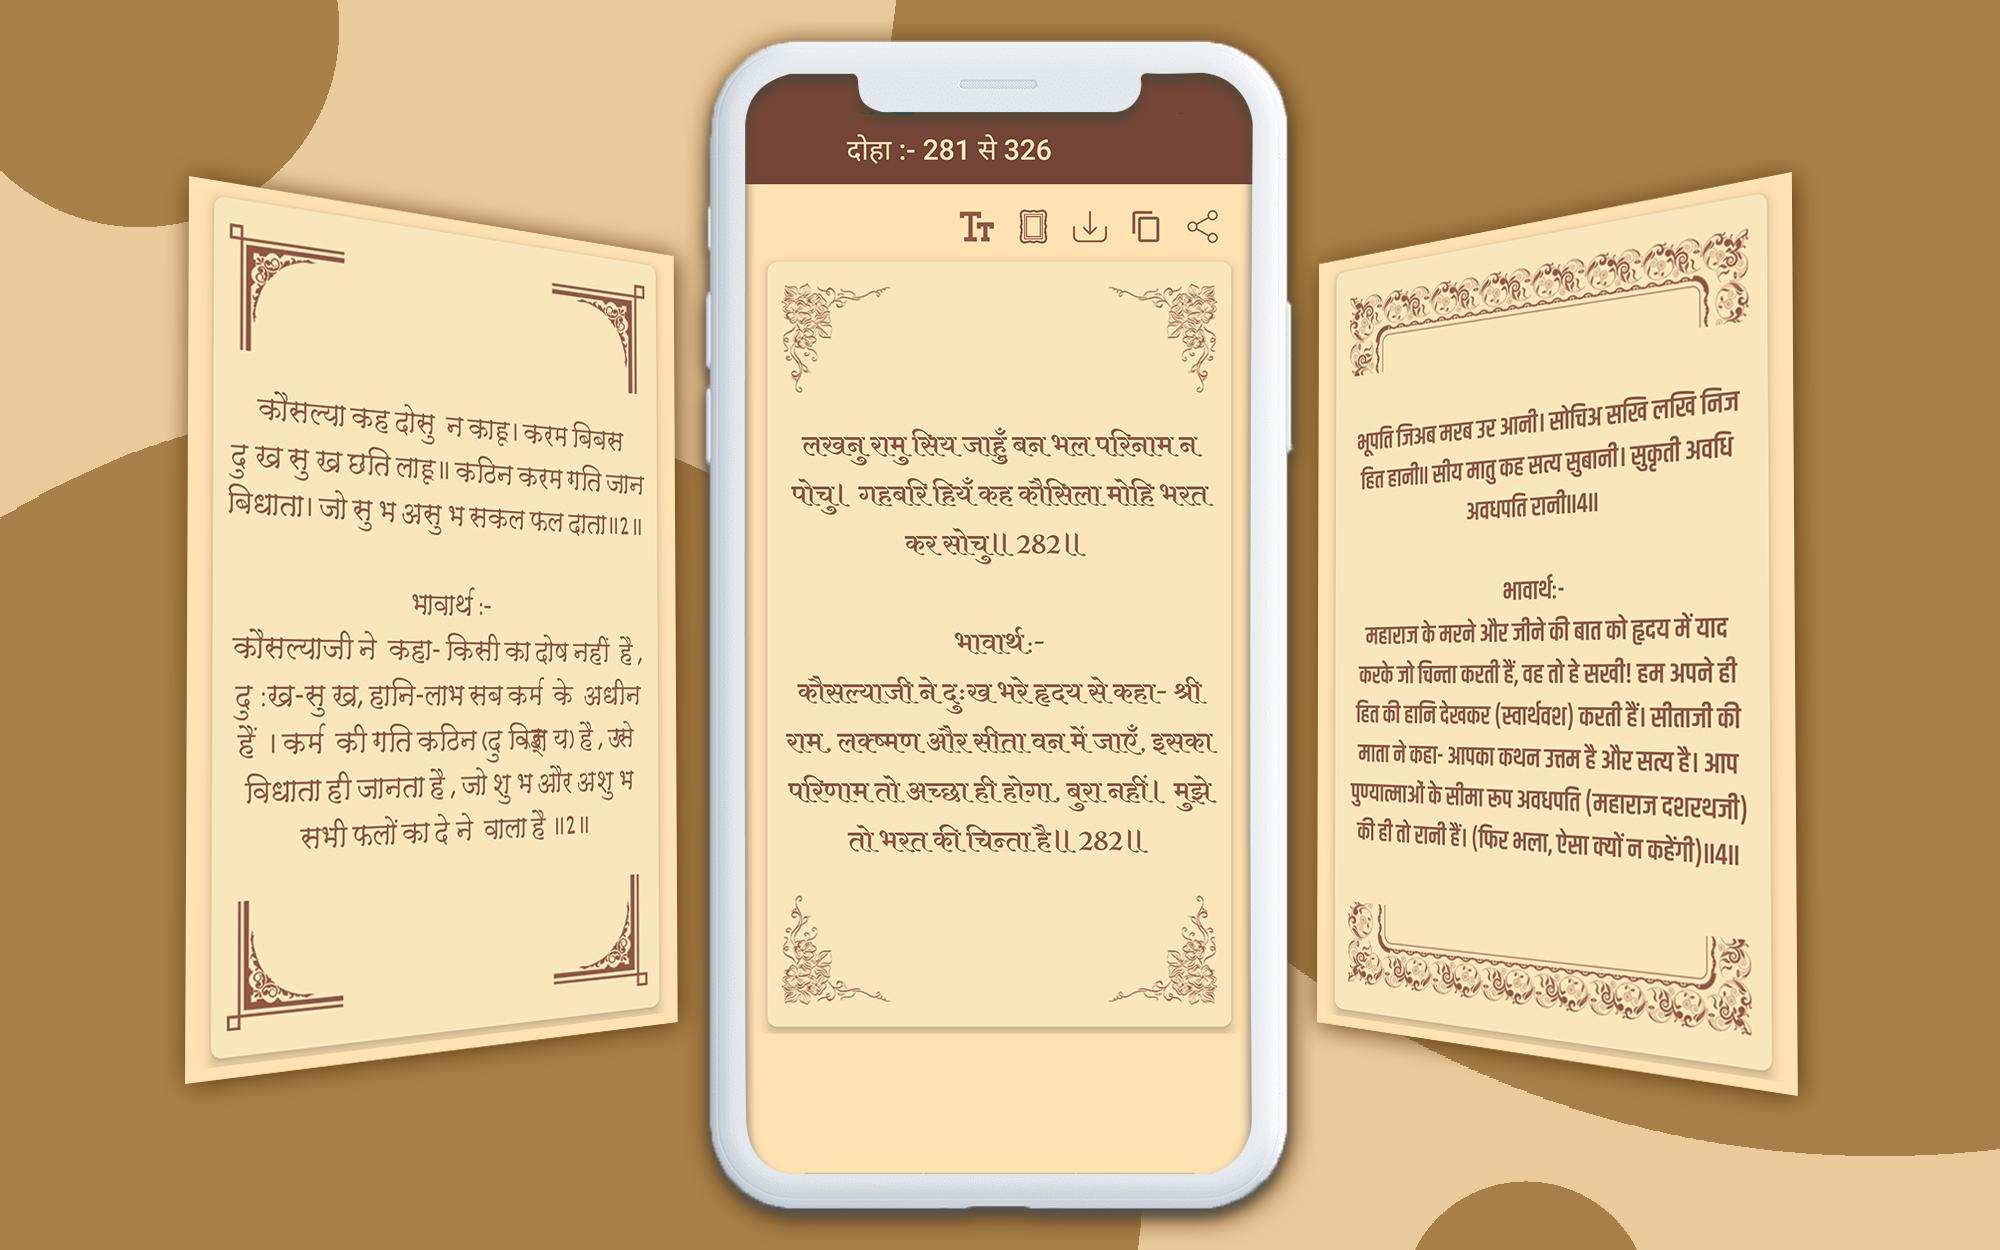 कौसल्या कह दोसु न काहू। करम बिबस
दु ख सु ख छति लाहू॥ कठिन करम गति जान
बिधाता। जो सु भ असु भ सकल फल दाता॥2॥
भावार्थ :-
कौसल्याजी ने कहा- किसी का दोष नहीं है,
दु :ख-सु ख, हानि-लाभ सब कर्म के अधीन
हैं । कर्म की गति कठिन (दु य) है, उसे
विधाता ही जानता है, जो शु भ और अशु भ
सभी फलों का दे ने वाला है ॥2॥
दोहा :- 281 से 326
लखनु रामु सिय जाहुँ बन भल परिनाम न
पोचु। गहबरि हियँ कह कौसिला मोहि भरत
कर सोचु॥ 282॥
भावार्थ:-
कौसल्याजी ने दुःख भरे हृदय से कहा- श्री
राम, लक्ष्मण और सीता वन में जाएँ, इसका
परिणाम तो अच्छा ही होगा, बुरा नहीं। मुझे
तो भरत की चिन्ता है॥ 282॥
भूपति जिअब मरब उर आनी। सोचिअ सखि लखि निज
हित हानी॥ सीय मातु कह सत्य सुबानी। सुकृती अवधि
अवधपति रानी॥4॥
भावार्थ:-
महाराज के मरने और जीने की बात को हृदय में याद
करके जो चिन्ता करती हैं, वह तो हे सखी! हम अपने ही
हित की हानि देखकर (स्वार्थवश) करती हैं। सीताजी की
माता ने कहा- आपका कथन उत्तम है और सत्य है। आप
पुण्यात्माओं के सीमा रूप अवधपति (महाराज दशरथजी)
की ही तो रानी हैं। (फिर भला, ऐसा क्यों न कहेंगी)॥4॥